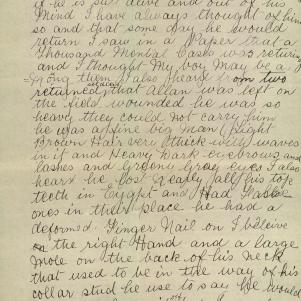 if he is still alive and out of his
Mind I have always thought of him
so and that some day he would
return I saw in a Paper that a
Thousand Mental Cases was returning
and I thought My boy May be a
mong them I also heard from two
returned that Allan was left on
the field wounded he was so
heavy they could not carry him
he was a fine big man Bright
Brown Hair very thick with waves
in it and Heavy Dark eyebrows and
lashes and Grey eyes I also
heard he lost nearly all his top
teeth in Egypt and Had False
ones in their place he had a
deformed Finger Nail on I bleive
on the right Hand and a large
Mole on the back of his neck
that used to be in the way of his
collar stud he use to say he would